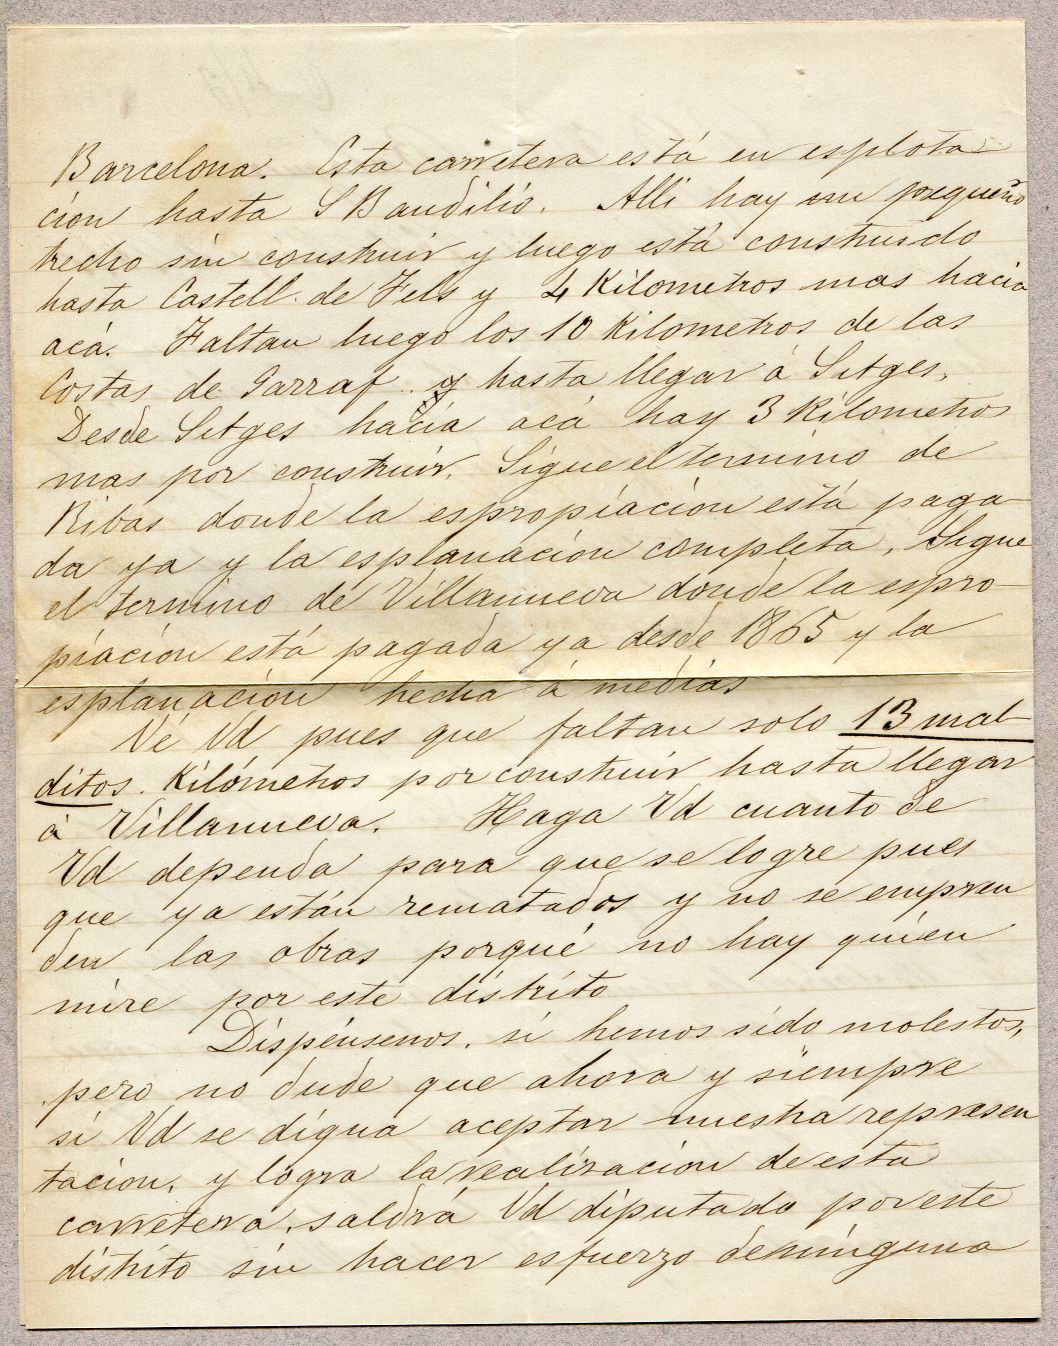 Barcelona. Esta carretera está en esplota
cion hasta S Baudilio. Alli hay un pequeño
trecho sin construir y luego está construido
hasta Castell de Fels y 4 Kilometros mas hacia
acá. Faltan luego los 10 Kilometros de las
Costas de Garraf y hasta llegar á Sitges.
Desde Sitges hacia acá hay 3 Kilometros
mas por construir. Sigue el termino de
Ribas donde la espropiacion está paga
da ya y la esplanacion completa. Sigue
el termino de Villanueva donde la espro-
piacion está pagada ya desde 1865 y la
esplanacion hecha á medias
Vé Vd pues que faltan solo 13 mal-
ditos Kilómetros por construir hasta llegar
á Villanueva. Haga Vd cuanto de
Vd dependa para que se logre pues
que ya están rematados y no se empren
den las obras porqué no hay quién
mire por este distrito
Dispénsenos, si hemos sido molestos,
pero no dude que ahora y siempre
si Vd se digna aceptar nuestra represen
tacion, y logra la realizacion de esta
carretera, saldrá Vd diputado por este
distrito sin hacer esfuerzo de ninguna